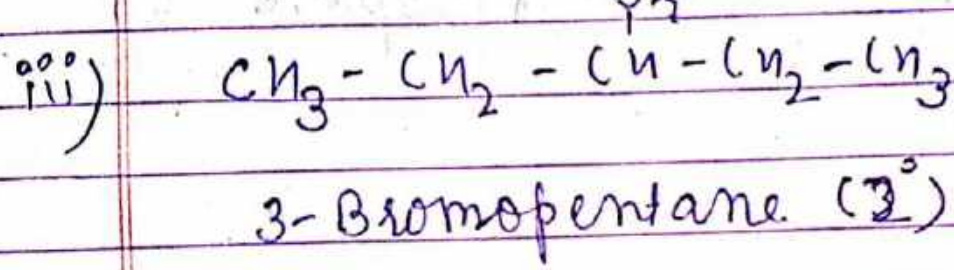 iii) CH3 - CH2 - CH - CH2 - CH3
3-Bromopentane (2°)